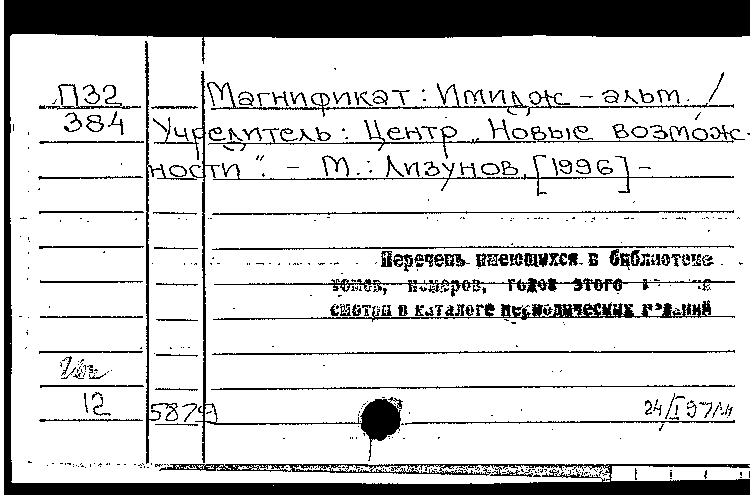 П32 Магнификат: Имидж-альм. /
384 Учредитель: Центр „Новые возмож-
ности". - М.: Лизунов, [1996] -
Перечень имеющихся в библиотеке
томов, номеров, годов этого
смотри в каталоге периодических изданий
12 5879 24/I 97